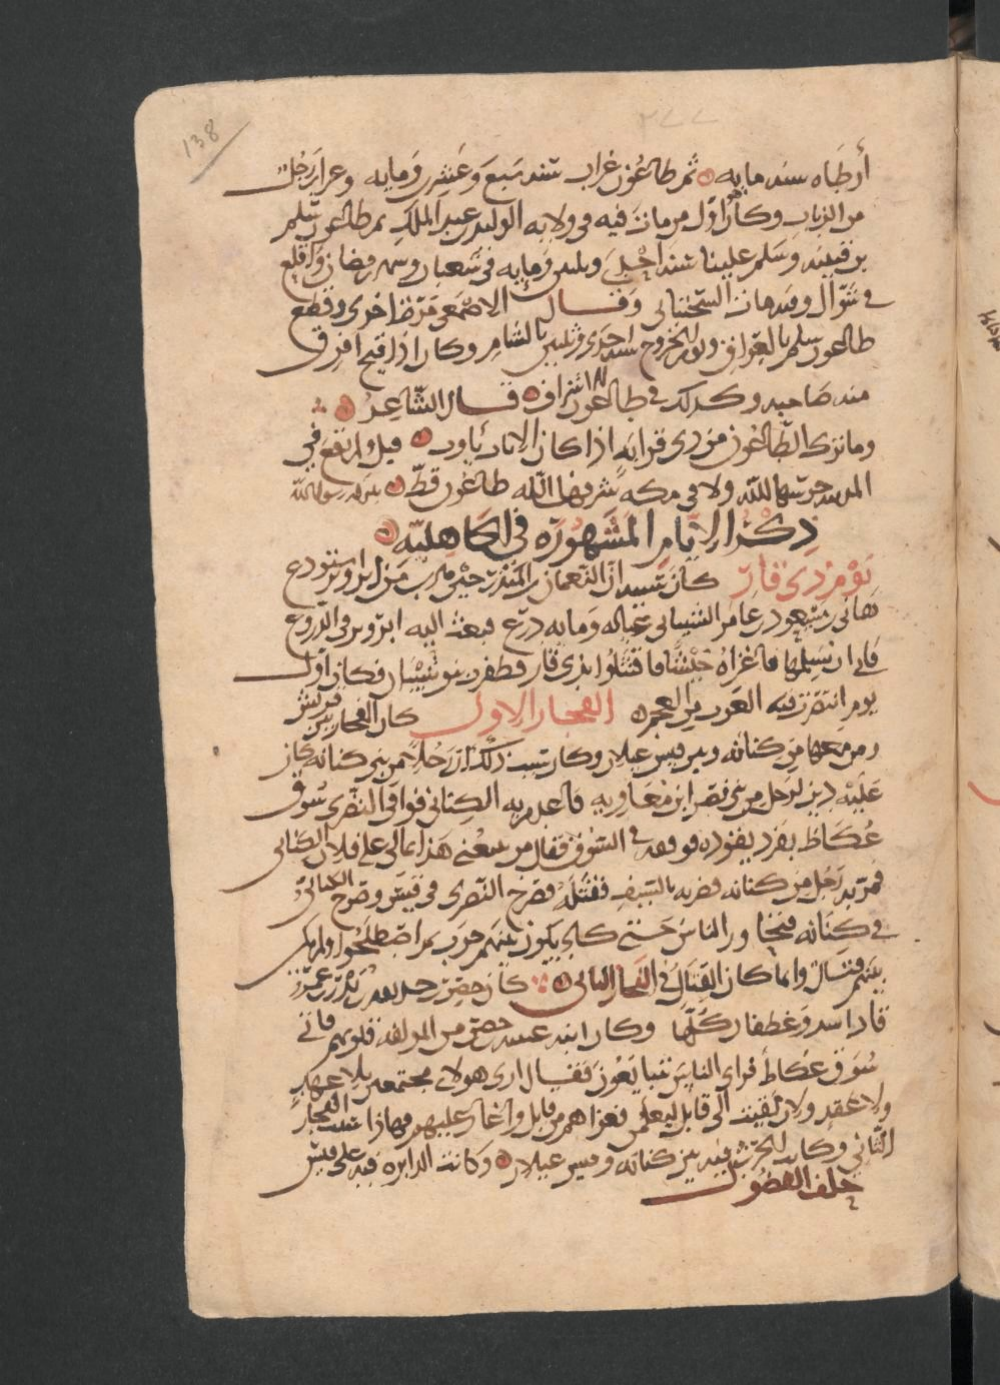 138
أرطاه سنه مايه ثم طاعون غراب سنه سبع وعشرين ومايه وغراب رجل
من الرباب وكان اول من مات فيه في ولايه الوليد بن عبد الملك ثم طاعون سلم
بن قتيبه وسلم علينا سنه احدى وثلثين ومايه في شعبان وشهر رمضان واقلع
في شوال وفيه مات السختياني وقال الاصمعي مرة اخرى وقع
طاعون سلم بالعراق الخروج سنه احدى وثلثين بالشام وكان اذا قيح افرق
منه صاحبه وكذلك في طاعون قال الشاعر
وما ترك الطاعون من ذي قرابة اذا كان الاياب ياوب قيل ولم يقع في
المدينة حرسها الله ولا في مكه شرفها الله طاعون قط
ذكر الايام المشهورة في الجاهليه
يوم ذي قار كان سببه ان النعمان بن المنذر حين هرب من ابرويز استودع
هاني بن مسعود بن عامر الشيباني عياله ومايه درع فبعث اليه ابرويز في الدروع
فابى ان يسلمها فاغزاه جيشا فاقتتلوا بذي قار فظفر بنو شيبان فكان اول
يوم انتصرت فيه العرب من العجم الفجار الاول كان الفجار بين قريش
ومن معها من كنانه وبين قيس عيلان وكان سبب ذلك ان رجلا من بني كنانه كان
عليه دين لرجل من بني نصر ابن معاويه فاعدم به الكناني فوافى النصري سوق
عكاظ بقرد يقوده فوقفه في السوق فقال من يبيعني هذا بمالي على فلان الكناني
فمر به رجل من كنانه فضربه بالسيف فقتله فصرخ النصري في قيس وصرخ الكناني
في كنانه فتحاور الناس حتى كاد يكون بينهم حرب ثم اصطلحوا ولم يكن
بينهم قتال وانما كان القتال في الفجار الثاني كان حصن بن حذيفه بن بدر
قاد اسد وغطفان كلها وكان ابنه عيينه بن حصن من المولفه قلوبهم فاتى
سوق عكاظ فراى الناس يتبايعون فقال ارى هولاي مجتمعين بلا عهد
ولا عقد ولان بقيت الى قابل ليعلمن فغزاهم من قابل واغار عليهم فهاذا سبب الفجار
الثاني وكانت الحرب فيه بين كنانه وقيس عيلان وكانت الدايره فيه على قيس
حلف الفضول